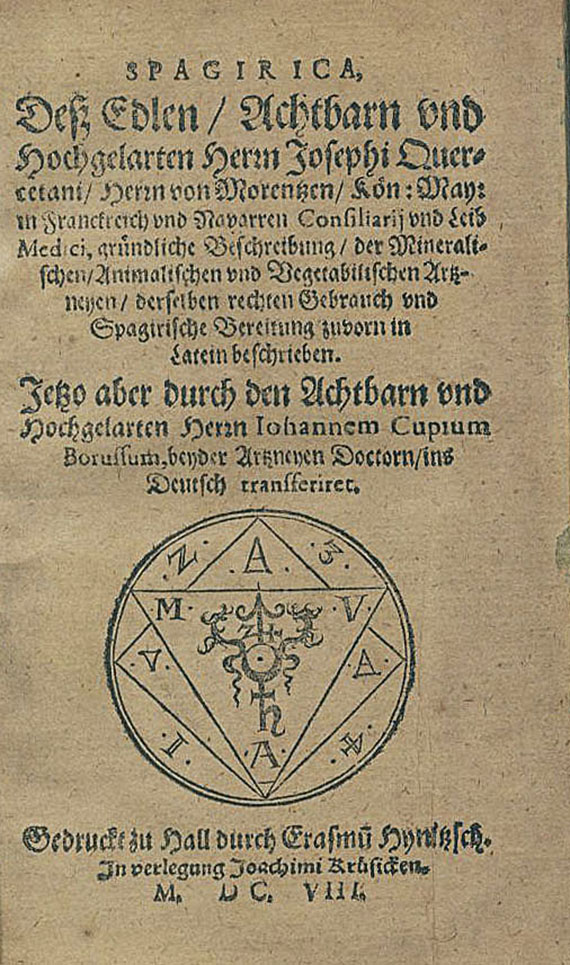 SPAGIRICA,
Deß Edlen / Achtbarn vnd
Hochgelarten Herrn Josephi Quer-
cetani / Herrn von Morentzen / Kön: May:
in Franckreich vnd Navarren Consiliarij vnd Leib
Medici, gründliche Beschreibung / der Minerali-
schen / Animalischen vnd Vegetabilischen Artz-
neyen / derselben rechten Gebrauch vnd
Spagirische Bereitung zuvorn in
Latein beschrieben.
Jetzo aber durch den Achtbarn vnd
Hochgelarten Herrn Iohannem Cupium
Borussum, beyder Artzneyen Doctorn / ins
Deutsch transferiret.
Z A 3
M V
V A
I A 4
Gedruckt zu Hall durch Erasmū Hynitzsch.
In verlegung Joachimi Krüsicken.
M. DC. VIII.